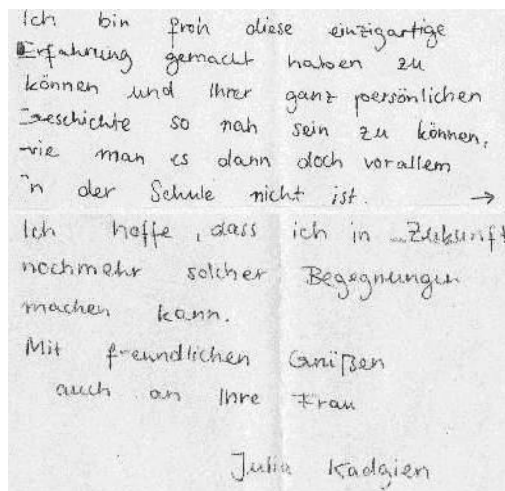 Ich bin froh diese einzigartige
Erfahrung gemacht haben zu
können und Ihrer ganz persönlichen
Geschichte so nah sein zu können,
wie man es dann doch vorallem
in der Schule nicht ist. →
Ich hoffe, dass ich in Zukunft
nochmehr solcher Begegnungen
machen kann.
Mit freundlichen Grüßen
auch an Ihre Frau
Julia Kadgien